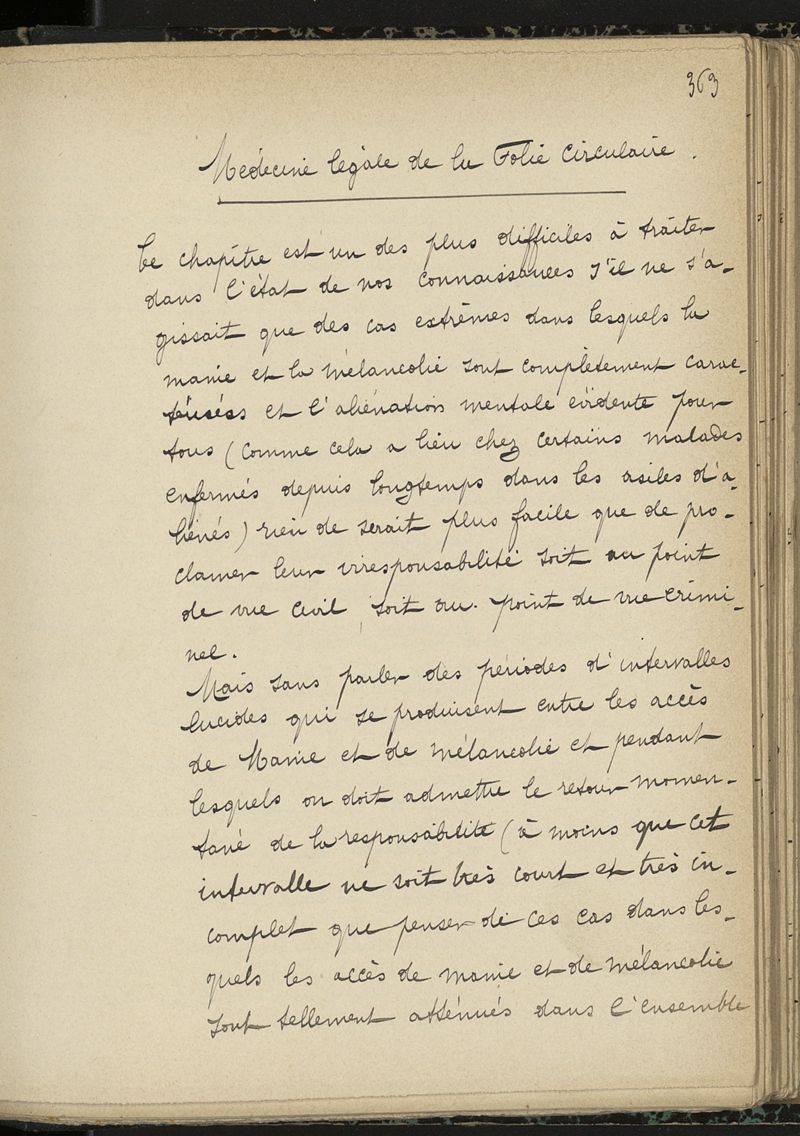 363
Médecine légale de la Folie Circulaire.
Ce chapitre est un des plus difficiles à traiter
dans l'état de nos connaissances s'il ne s'a-
gissait que des cas extrêmes dans lesquels la
manie et la mélancolie sont complètement carac-
térisés et l'aliénation mentale évidente pour
tous (comme cela a lieu chez certains malades
enfermés depuis longtemps dans les asiles d'a-
liénés) rien de serait plus facile que de pro-
clamer leur irresponsabilité soit au point
de vue civil, soit au point de vue crimi-
nel.
Mais sans parler des périodes d'intervalles
lucides qui se produisent entre les accès
de Manie et de mélancolie et pendant
lesquels on doit admettre le retour momen-
tané de la responsabilité (à moins que cet
intervalle ne soit très court et très in-
complet que penser de ces cas dans les-
quels les accès de manie et de mélancolie
sont tellement atténués dans l'ensemble